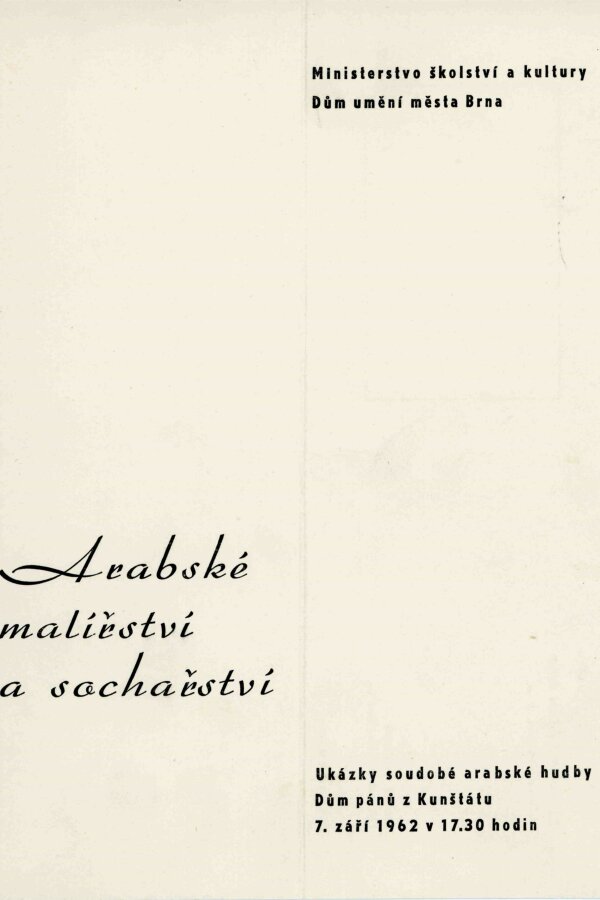 Ministerstvo školství a kultury
Dům umění města Brna
Arabské
malířství
a sochařství
Ukázky soudobé arabské hudby
Dům pánů z Kunštátu
7. září 1962 v 17.30 hodin